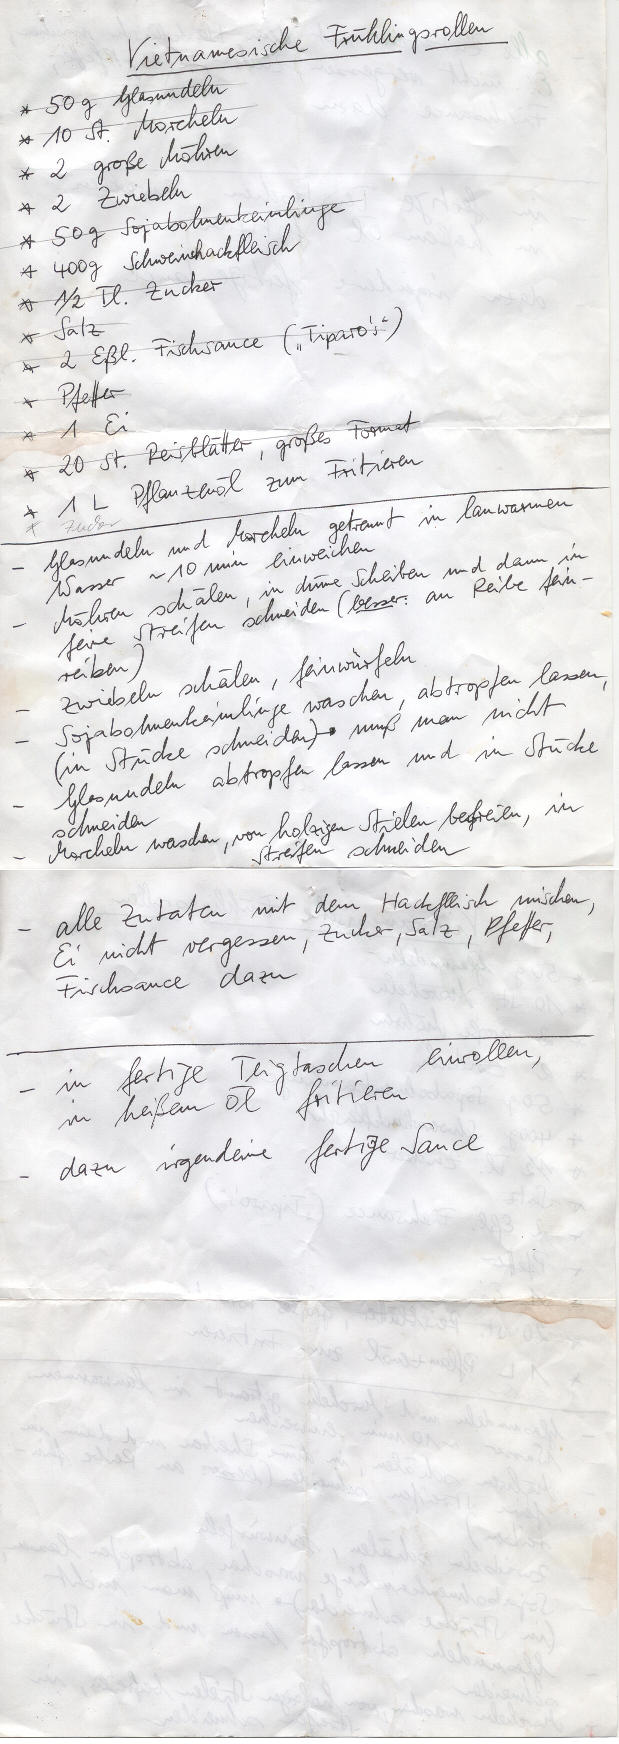 Vietnamesische Frühlingsrollen
* 50 g Glasnudeln
* 10 St. Morcheln
* 2 große Möhren
* 2 Zwiebeln
* 50 g Sojabohnenkeimlinge
* 400g Schweinehackfleisch
* 1/2 Tl. Zucker
* Salz
* 2 Eßl. Fischsauce („Tiparo's“)
* Pfeffer
* 1 Ei
* 20 St. Reisblätter, großes Format
* 1 L Pflanzenöl zum Fritieren
* Zucker
- Glasnudeln und Morcheln getrennt in lauwarmen
Wasser ~ 10 min einweichen
- Möhren schälen, in dünne Scheiben und dann in
feine Streifen schneiden (besser: an Reibe fein-
reiben)
- Zwiebeln schälen, feinwürfeln
- Sojabohnenkeimlinge waschen, abtropfen lassen,
(in Stücke schneiden) → muß man nicht
- Glasnudeln abtropfen lassen und in Stücke
schneiden
- Morcheln waschen, von holzigen Stielen befreien, in
Streifen schneiden
- alle Zutaten mit dem Hackfleisch mischen,
Ei nicht vergessen, Zucker, Salz, Pfeffer,
Fischsauce dazu
- in fertige Teigtaschen einrollen,
in heißem Öl fritieren
- dazu irgendeine fertige Sauce